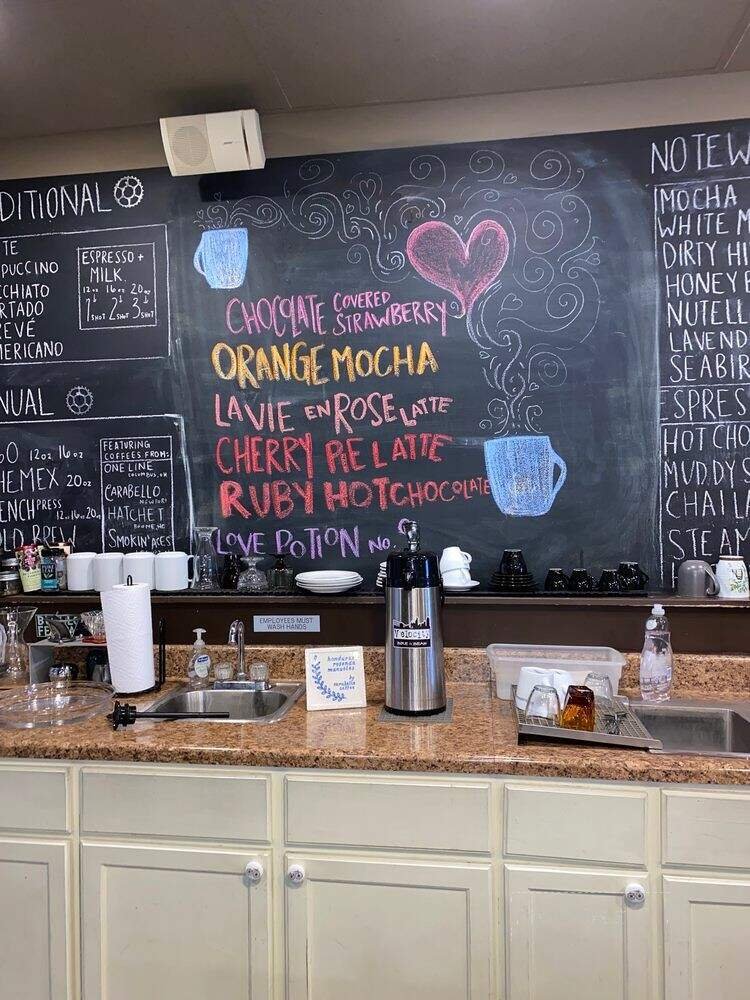 DITIONAL
TE
PUCCINO
CCHIATO
RTADO
EVÉ
ERICANO
ESPRESSO +
MILK
12oz 16oz 20oz
1 2 3
SHOT SHOT SHOT
NUAL
O 12oz 16oz
HEMEX 20oz
ENCH PRESS
12oz 16oz 20oz
LD BREW
FEATURING
COFFEES FROM:
ONE LINE
COLUMBUS, OH
CARABELLO
NEWPORT
HATCHET
SMOKIN' ACES
CHOCOLATE COVERED STRAWBERRY
ORANGE MOCHA
LA VIE EN ROSE LATTE
CHERRY PIE LATTE
RUBY HOT CHOCOLATE
LOVE POTION NO.
NOTEW
MOCHA
WHITE M
DIRTY HI
HONEY
NUTELL
LAVEND
SEABIR
ESPRES
HOT CHO
MUDDY S
CHAI LA
STEAM
EMPLOYEES MUST
WASH HANDS
honduras
rosenda
manueles
by
carabello
coffee
Velocity
BIKE & BEAN